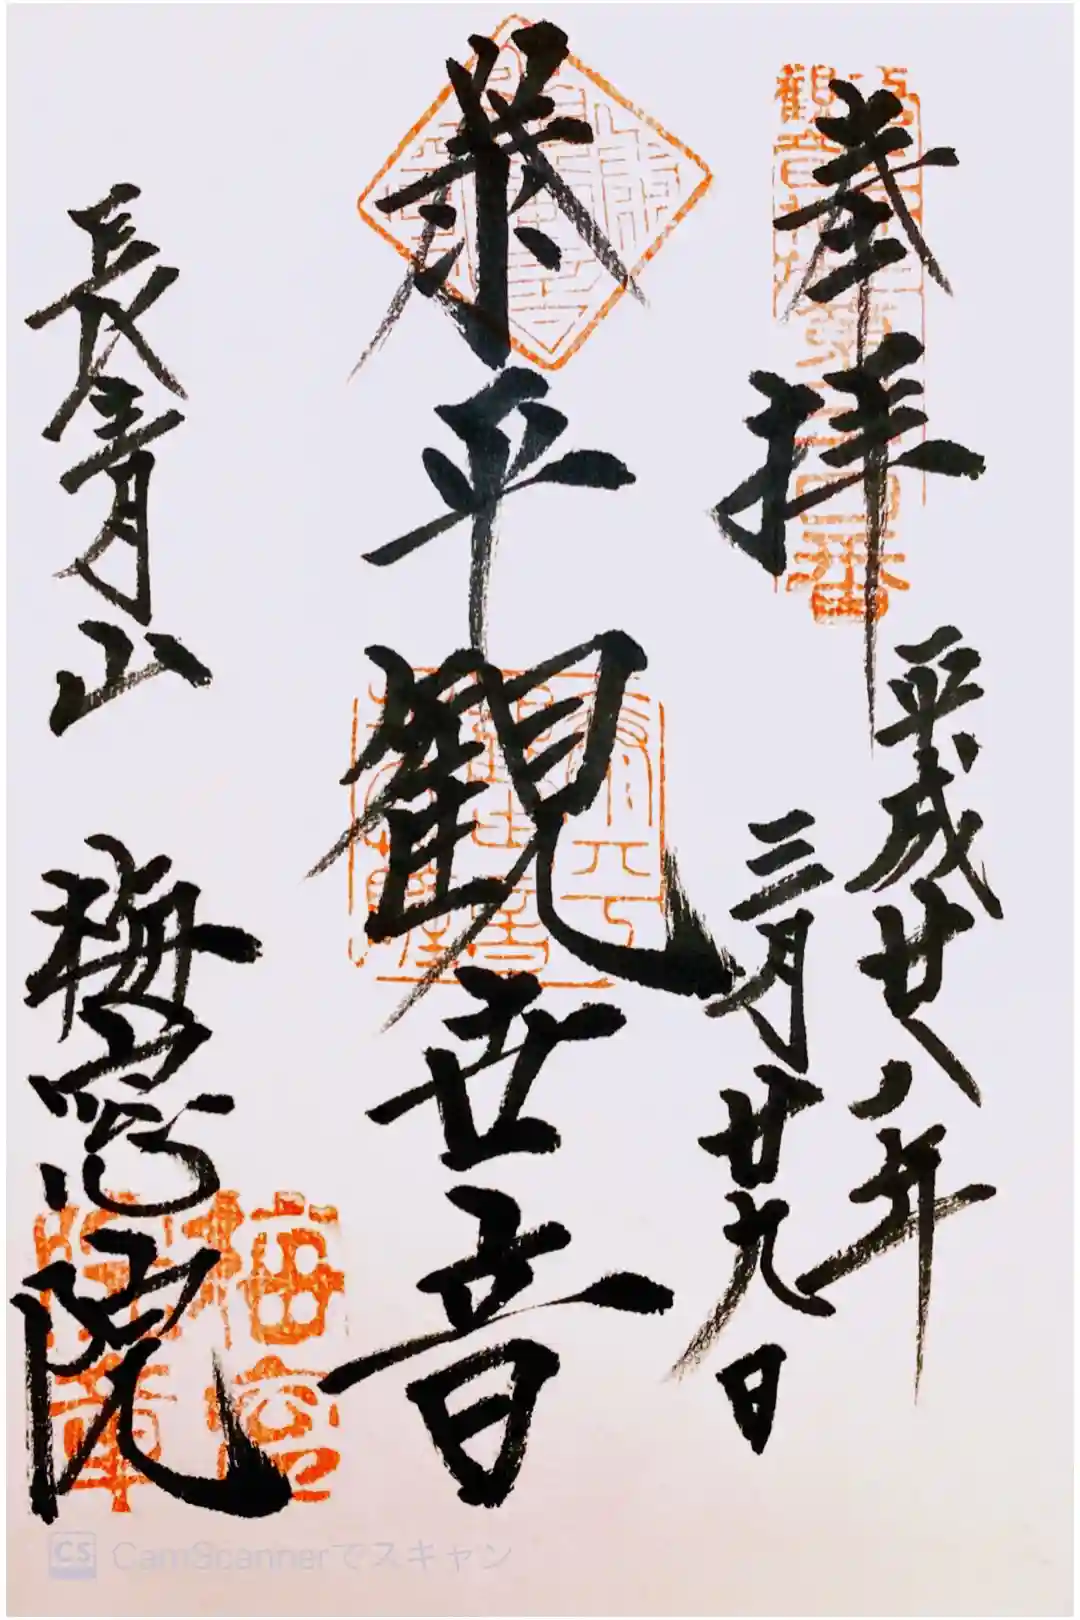 奉拝
平成廿八年
三月廿九日
泰平観世音
長青山 梅窓院
CS CamScannerでスキャン